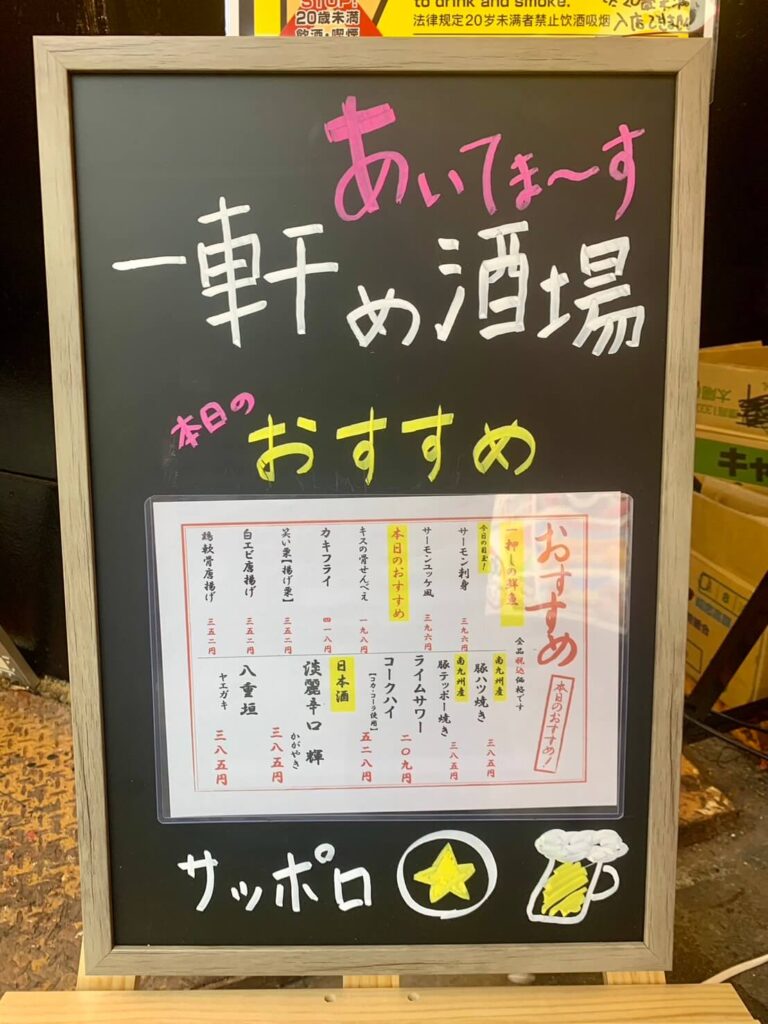 STOP!
20歳未満
飲酒・喫煙
to drink and smoke.
法律规定20岁未満者禁止饮酒吸烟
あいてま〜す
一軒め酒場
本日の
おすすめ
おすすめ
本日のおすすめ!
全品税込価格です
一押しの鮮魚
今日の目玉!
サーモン刺身 三九六円
サーモンユッケ風 三九六円
本日のおすすめ
キスの骨せんべえ 一九八円
カキフライ 四一八円
笑い栗【揚げ栗】 三五二円
白エビ唐揚げ 三五二円
鶏軟骨唐揚げ 三五二円
南九州産
豚ハツ焼き 三八五円
南九州産
豚テッポー焼き 三八五円
ライムサワー 二〇九円
コークハイ 五二八円
【コカ・コーラ使用】
日本酒
淡麗辛口 輝 三八五円
かがやき
八重垣 三八五円
ヤエガキ
サッポロ
キャ